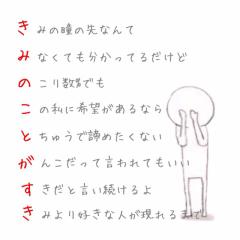 きみの瞳の先なんて
みなくても分かってるだけど
のこり数%でも
この私に希望があるなら
とちゅうで諦めたくない
がんこだって言われてもいい
すきだと言い続けるよ
きみより好きな人が現れるまで